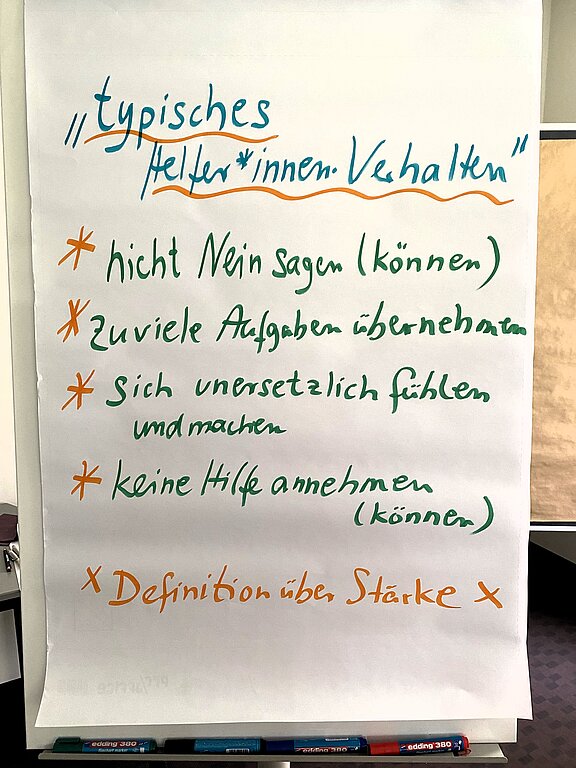 „typisches
Helfer*innen-Verhalten"
* nicht Nein sagen (können)
* zuviele Aufgaben übernehmen
* sich unersetzlich fühlen
und machen
* keine Hilfe annehmen
(können)
x Definition über Stärke x
edding 380
edding 380
edding 380